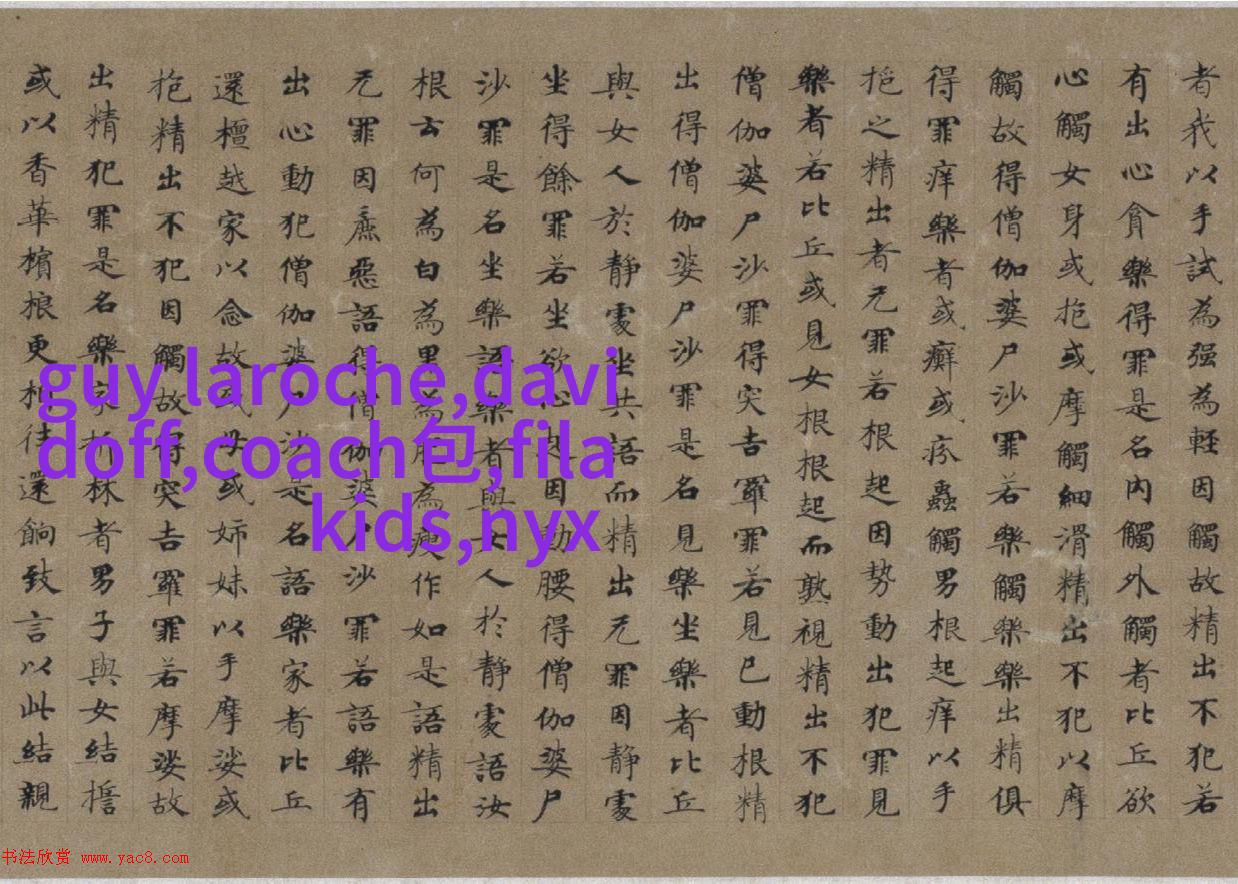 者我以手試為强為輕因觸故精出不犯若
有出心貪樂得罪是名内觸外觸者比丘欲
心觸女身或抱或摩觸細滑精出不犯以摩
觸故得僧伽婆尸沙罪若樂觸樂樂出精俱
得罪痒樂者或癬或疥蟲觸男根起痒以手
抱之精出者无罪若根起因势動出犯罪見
樂者若比丘或見女根根起而熟視精出不犯
僧伽婆尸沙罪得突吉羅罪若見已動根精
出得僧伽婆尸沙罪是名見樂坐樂者比丘
與女人於静處坐共語而精出无罪因静處
坐得餘罪若坐欲心起因動腰得僧伽婆尸
沙罪是名坐樂語樂者與女人於静處語汝
根云何為白為黑為肥為瘦作如是語精出
无罪因麁惡語得僧伽婆尸沙罪若語樂有
出心動犯僧伽婆尸沙是名語樂家者比丘
還檀越家以念故或母或姊妹以手摩挲或
抱精出不犯因觸故得突吉羅罪若摩挲故
出精犯罪是名樂家折林者男子與女結誓
或以香華檳榔更相往還餉致言以此結親
guy laroche,davi
doff,coach包,fila
kids,nyx
书法欣赏 www.yac8.com